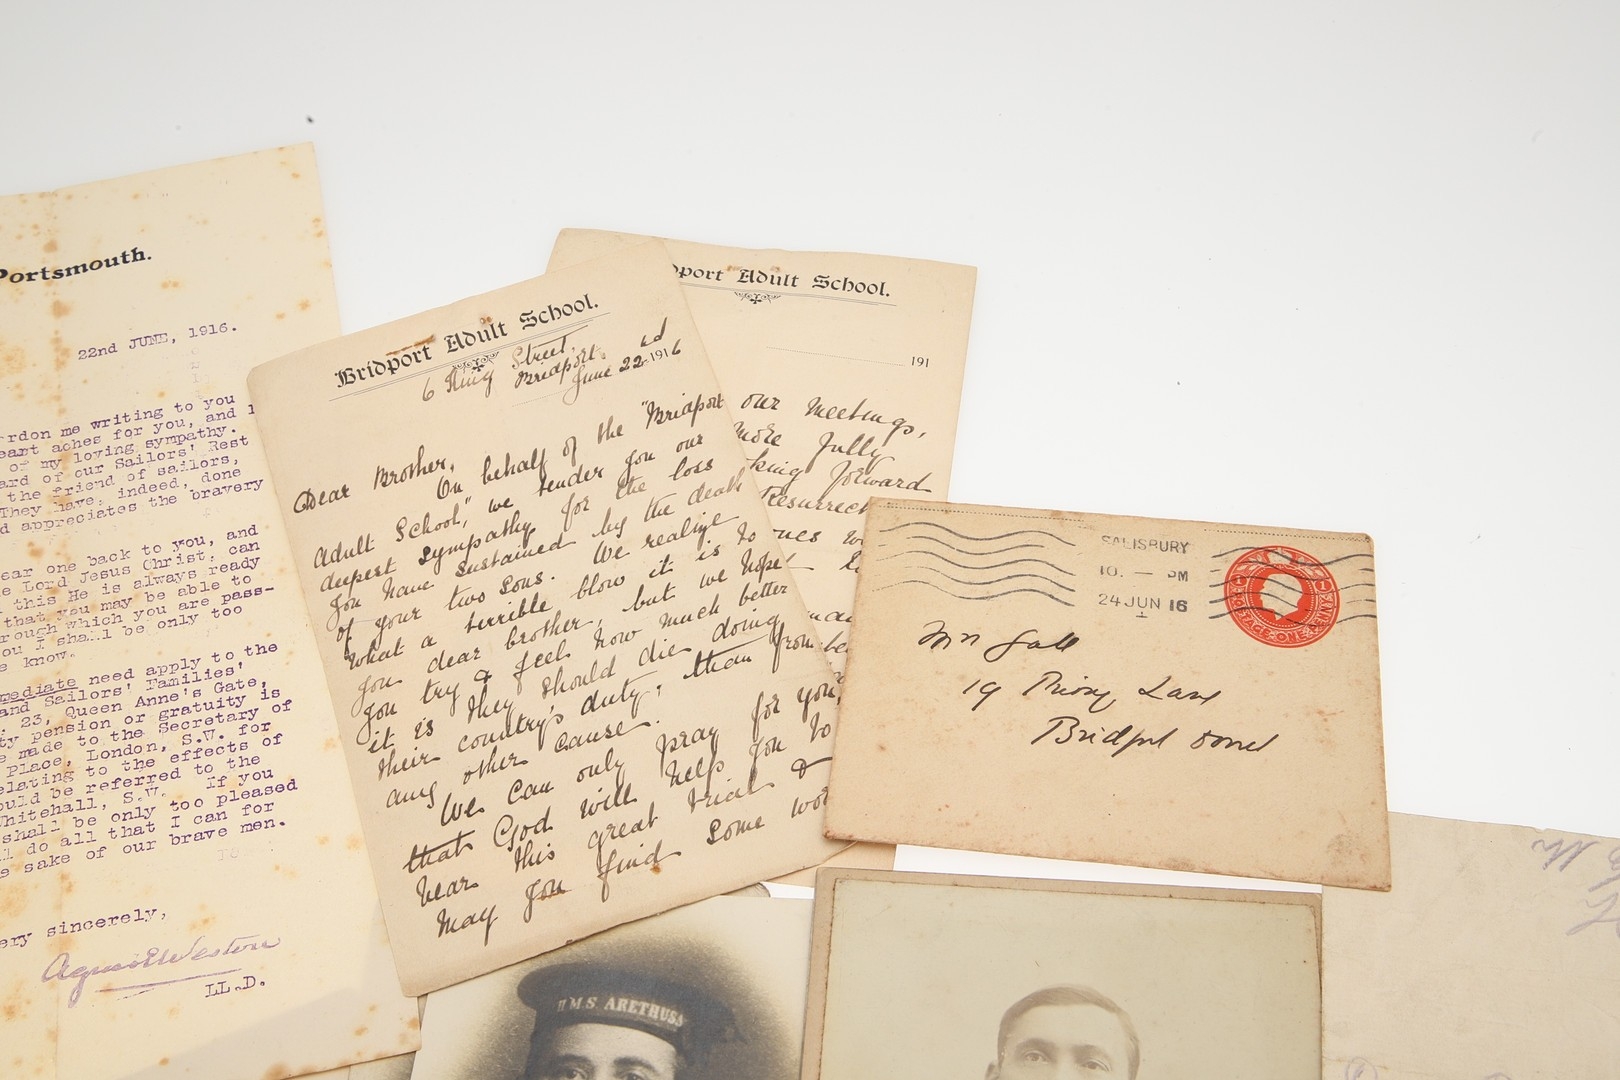 Portsmouth.
22nd JUNE, 1916.
rdon me writing to you
eart aches for you, and I
of my loving sympathy.
ard of our Sailors' Rest
the friend of sailors,
They have, indeed, done
d appreciates the bravery
ear one back to you, and
e Lord Jesus Christ, can
this He is always ready
that you may be able to
rough which you are pass-
ou I shall be only too
e know.
mediate need apply to the
and Sailors' Families'
23, Queen Anne's Gate,
ty pension or gratuity is
e made to the Secretary of
Place, London, S.W. for
elating to the effects of
ould be referred to the
Whitehall, S.W. If you
shall be only too pleased
l do all that I can for
e sake of our brave men.
ery sincerely,
Agnes E Weston
LL.D.
Bridport Adult School.
6 King Street,
Bridport.
June 22nd 1916
Dear Brother,
On behalf of the "Bridport
Adult School," we tender you our
deepest sympathy for the loss
you have sustained by the death
of your two sons. We realize
what a terrible blow it is to
you dear brother, but we hope
you try & feel how much better
it is they should die doing
their country's duty, than from
any other cause.
We can only pray for you,
that God will help you to
bear this great trial &
may you find some wor
port Adult School.
191
our meetings,
more fully
king forward
Resurrect
ones
SALISBURY
10. — PM
24 JUN 16
POSTAGE ONE PENNY
1
1
Mr Gall
19 Priory Lane
Bridport Dorset
H.M.S. ARETHUSA